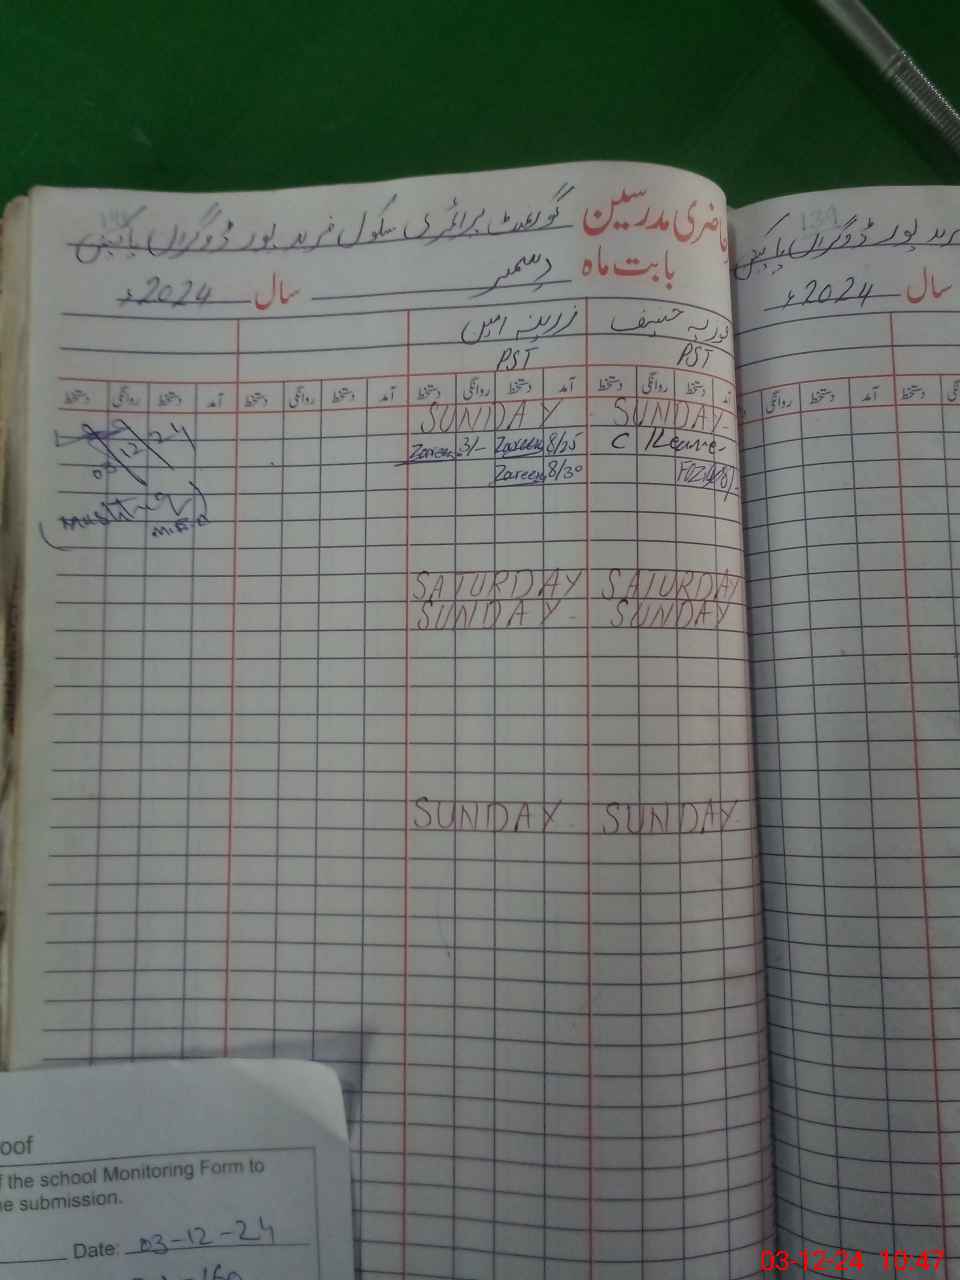 حاضری مدرسین گورنمنٹ پرائمری سکول فرید پور ڈوگراں
بابت ماہ دسمبر سال 2024ء
زرینہ امین
PST PST
آمد دستخط روانگی دستخط آمد دستخط روانگی دستخط آمد دستخط روانگی دستخط آمد دستخط روانگی دستخط
SUNDAY SUNDAY
Zareen 3/- Zareen 8/25 C Leave
Zareen 8/30
SATURDAY SATURDAY
SUNDAY SUNDAY
SUNDAY SUNDAY
03 12 24
139
فرید پور ڈوگراں
سال 2024ء
آمد دستخط روانگی دستخط
oof
f the school Monitoring Form to
e submission.
Date: 03-12-24
03-12-24 10:47